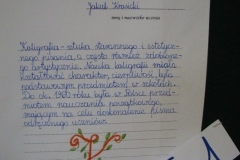 Jakub Krasicki
Kaligrafia - sztuka starannego i estetycz-
nego pisania, a często również zdobione-
go artystycznie. Nauka kaligrafii miała
kształtować charakter, cierpliwość, była
podstawowym przedmiotem w szkołach.
Do ok. 1960 roku była w Polsce przed-
miotem nauczania początkowego,
mającym na celu doskonalenie pisma
odręcznego uczniów.